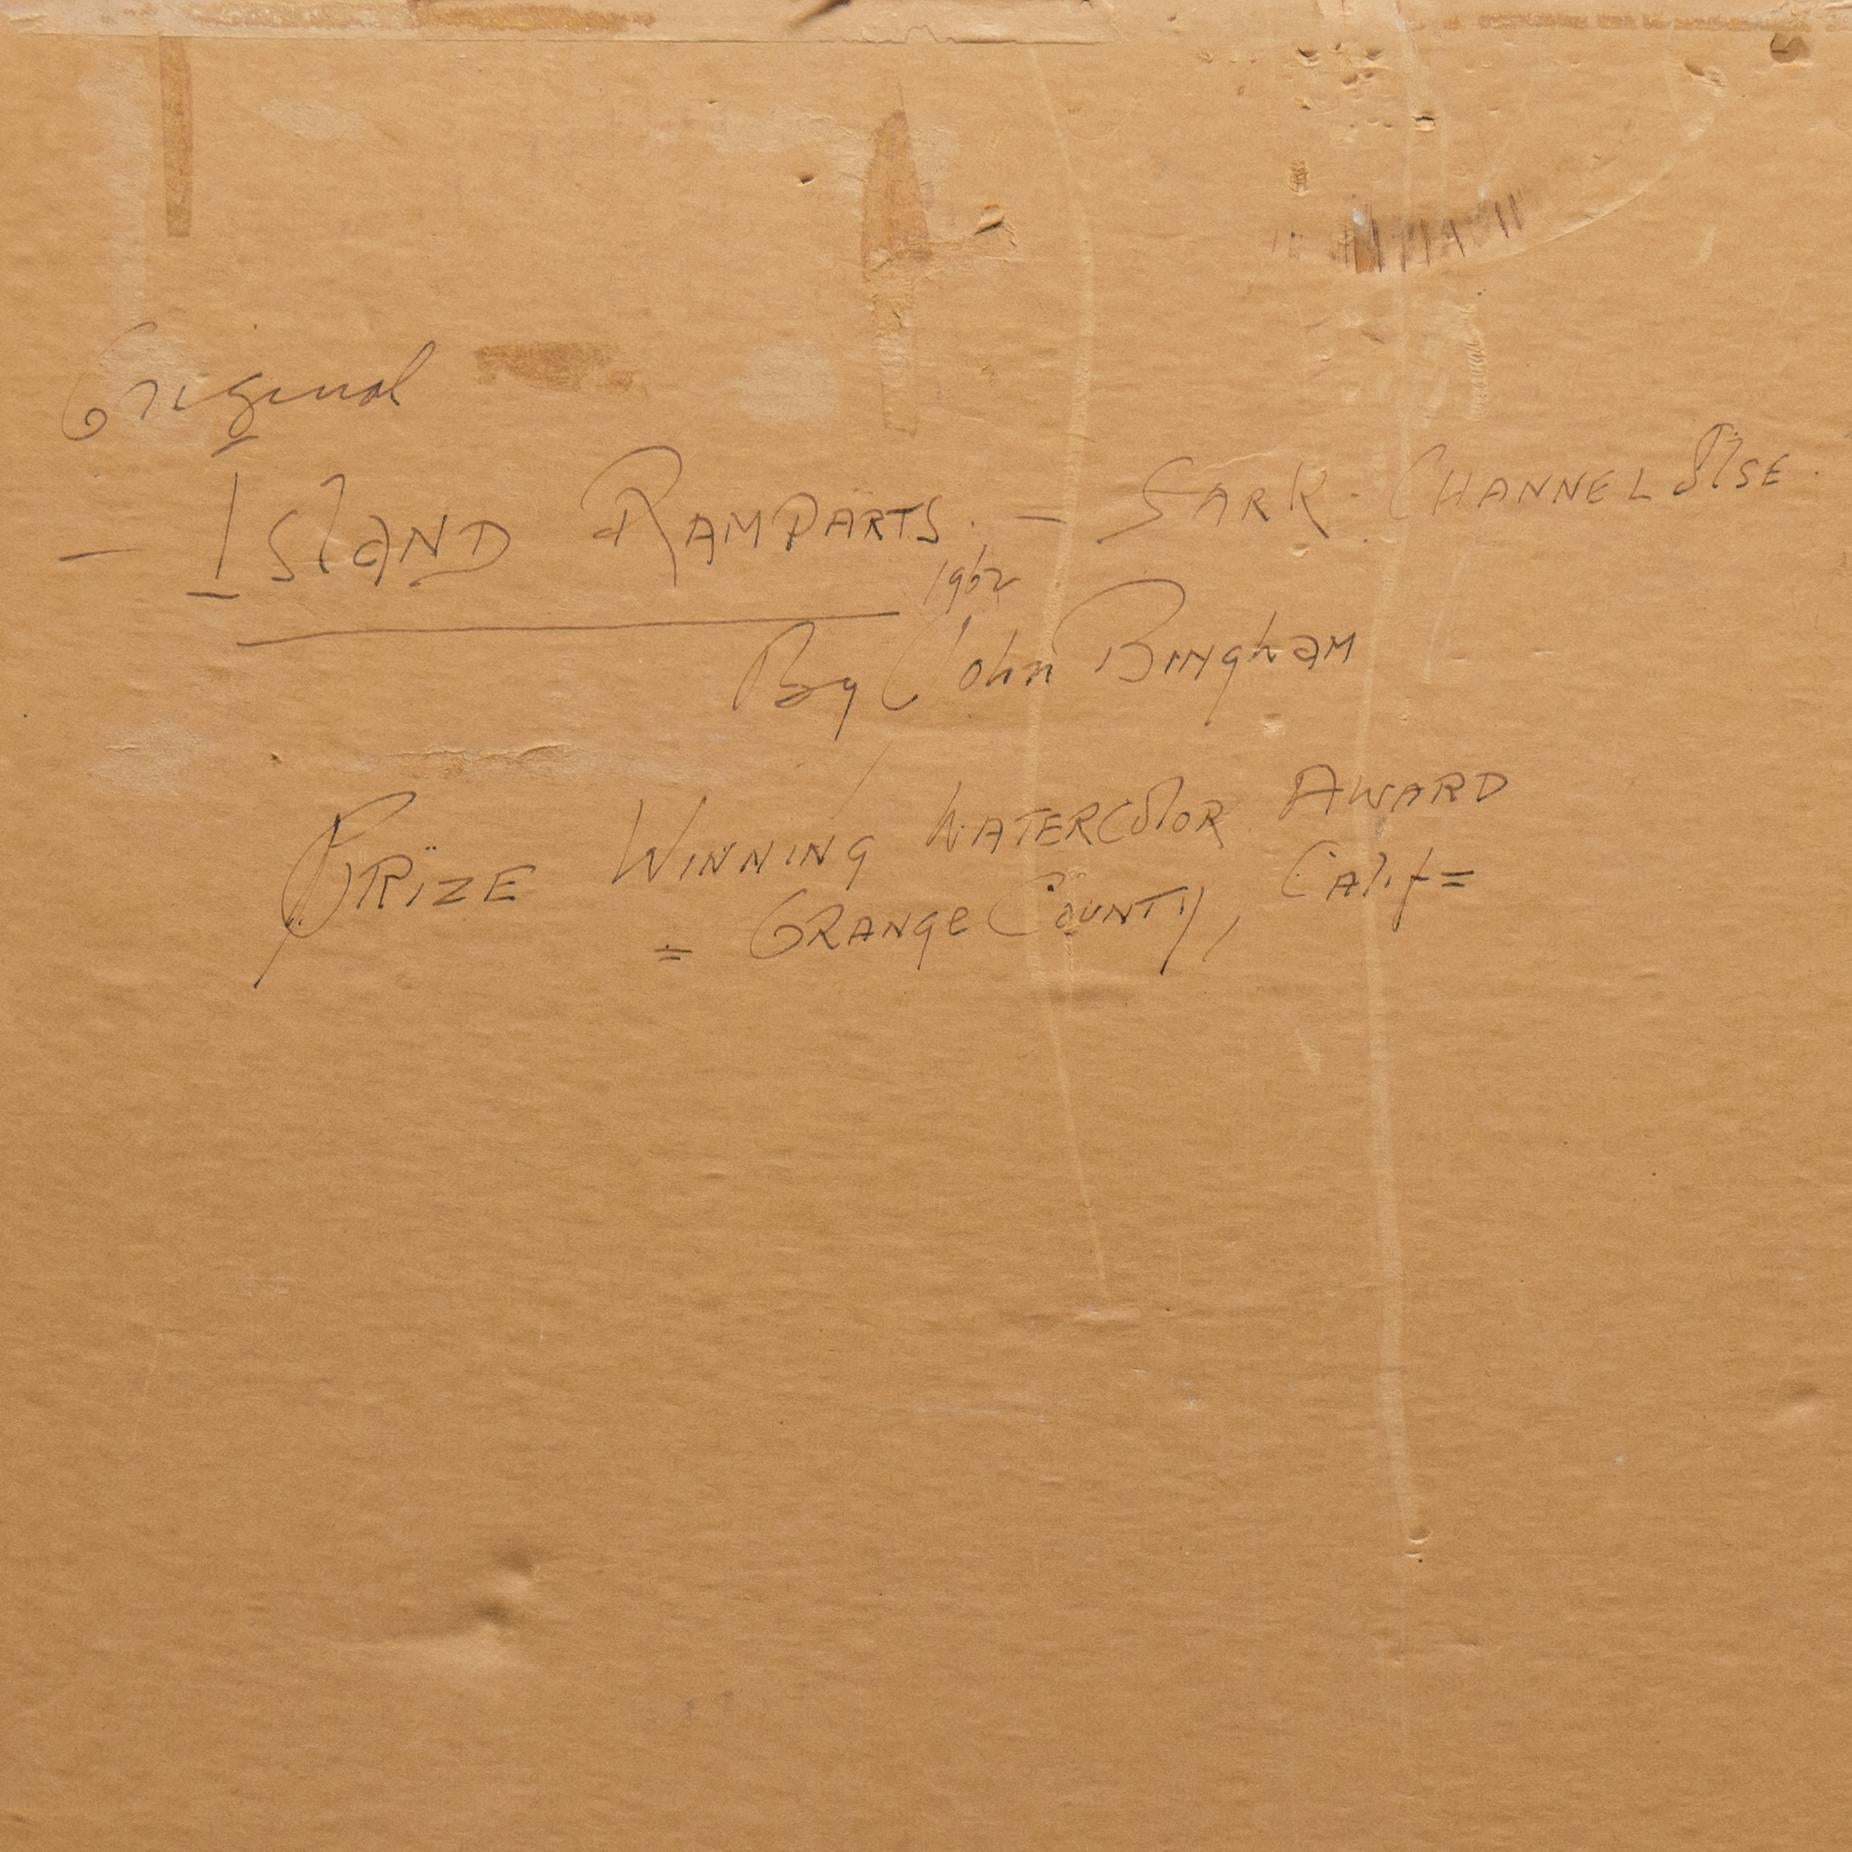 Original
— ISlAND RAMPARTS. — SARK. CHANNEL ISlE.
1962
By John Bingham
PRIZE WINNING WATERCOlOR AWARD
= ORANGE COUNTY, Calif =